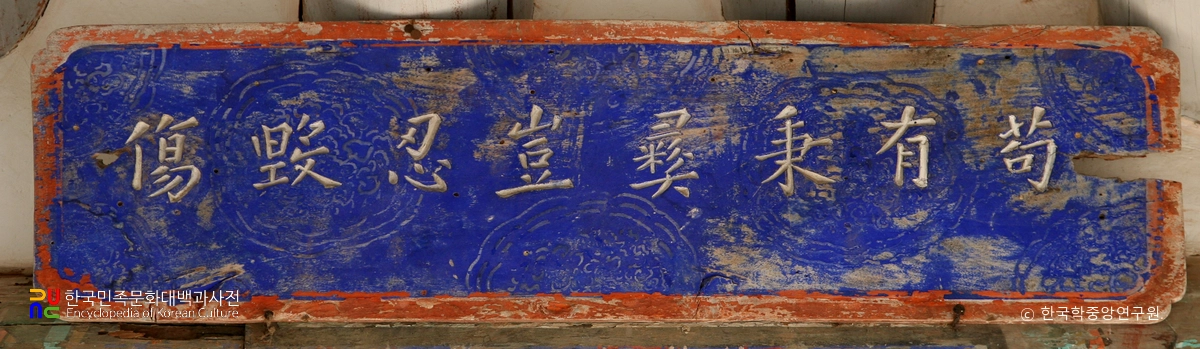 苟有秉彛豈忍毀傷
한국민족문화대백과사전
Encyclopedia of Korean Culture
© 한국학중앙연구원